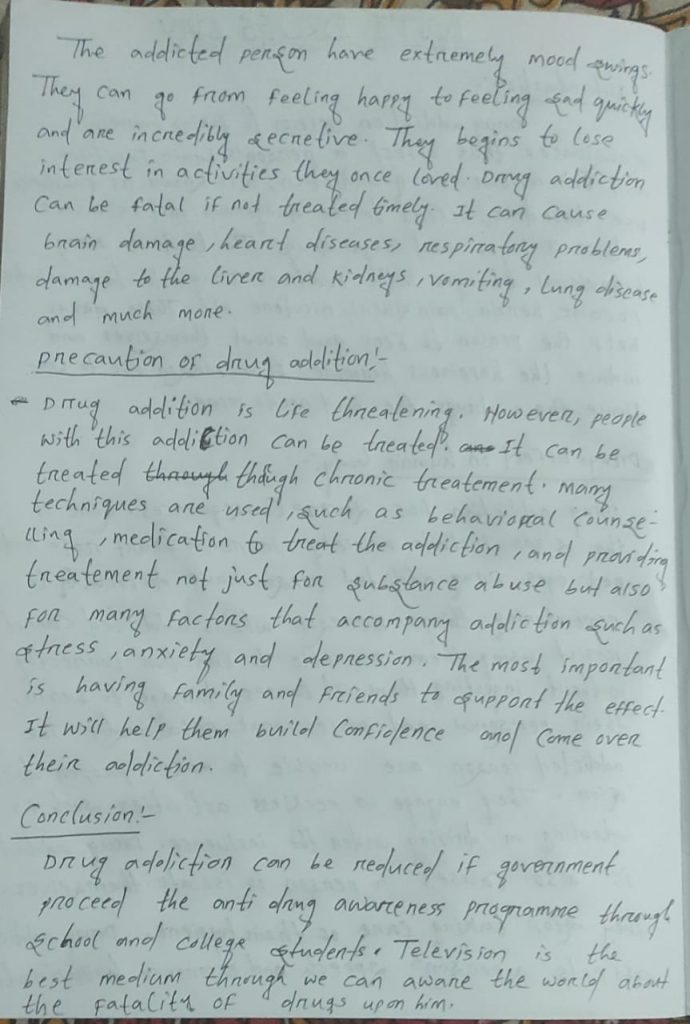 The addicted person have extremely mood swings.
They can go from feeling happy to feeling sad quickly
and are incredibly secretive. They begins to lose
interest in activities they once loved. Drug addiction
can be fatal if not treated timely. It can cause
brain damage, heart diseases, respiratory problems,
damage to the liver and kidneys, vomiting, lung disease
and much more.
precaution of drug addition!-
Drug addition is life threatening. However, people
with this addiction can be treated. It can be
treated through though chronic treatement. many
techniques are used, such as behavioral counse-
lling, medication to treat the addiction, and providing
treatement not just for substance abuse but also
for many factors that accompany addiction such as
stress, anxiety and depression. The most important
is having family and friends to support the effect.
It will help them build confidence and come over
their addiction.
Conclusion!-
Drug addiction can be reduced if government
proceed the anti drug awareness programme through
school and college students. Television is the
best medium through we can aware the world about
the fatality of drugs upon him.